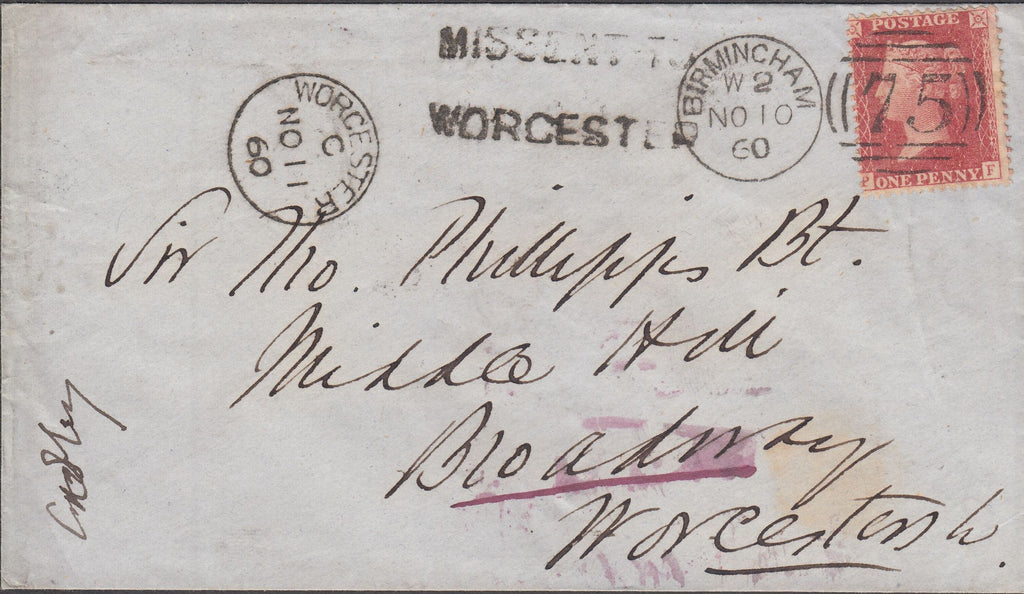 MISSENT TO
WORCESTER
BIRMINGHAM
W 2
NO 10
60
POSTAGE
75
P ONE PENNY F
WORCESTER
C
NO 11
60
Sir Tho. Phillipps Bt.
Middle Hill
Broadway
Worcestersh.